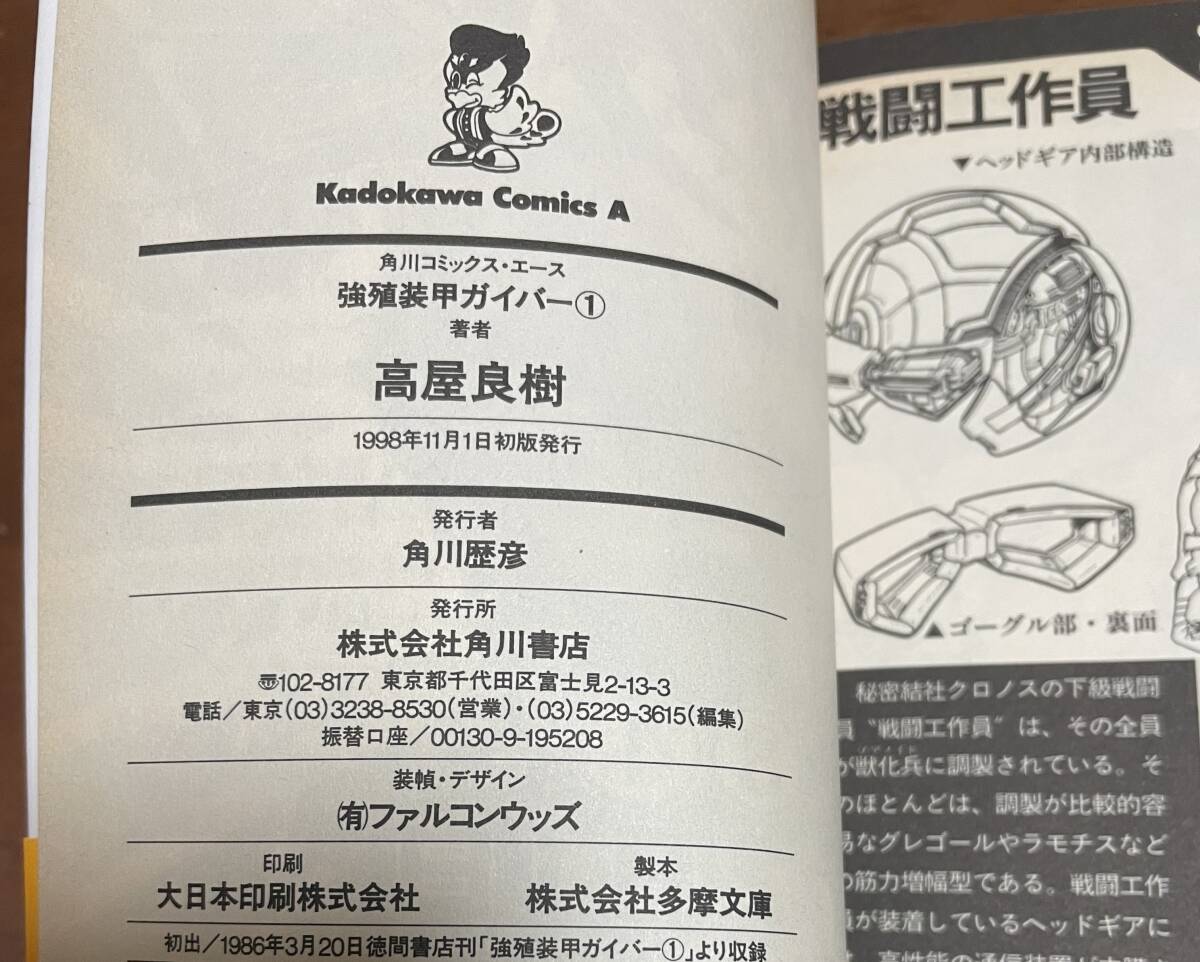 Kadokawa Comics A
角川コミックス・エース
強殖装甲ガイバー①
著者
高屋良樹
1998年11月1日初版発行
発行者
角川歴彦
発行所
株式会社角川書店
〠102-8177 東京都千代田区富士見2-13-3
電話／東京(03)3238-8530(営業)・(03)5229-3615(編集)
振替口座／00130-9-195208
装幀・デザイン
㈲ファルコンウッズ
印刷
大日本印刷株式会社
製本
株式会社多摩文庫
初出／1986年3月20日徳間書店刊「強殖装甲ガイバー①」より収録
戦闘工作員
▼ヘッドギア内部構造
▲ゴーグル部・裏面
秘密結社クロノスの下級戦闘
員〝戦闘工作員〟は、その全員
が獣化兵に調製されている。そ
のほとんどは、調製が比較的容
易なグレゴールやラモチスなど
の筋力増幅型である。戦闘工作
員が装着しているヘッドギアに
は、高性能の通信装置が内蔵